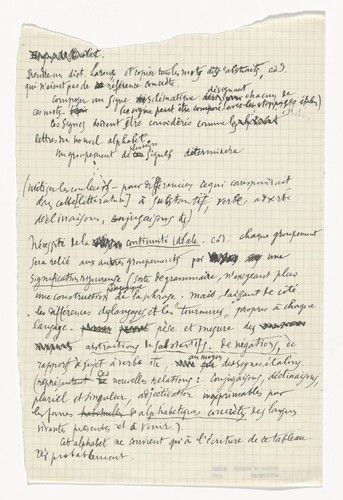 Prendre un dict. Larousse et copier tous les mots dits "abstraits", c.à.d.
qui n'aient pas de référence concrète.
Composer un signe schématique désignant chacun de
ces mots (ce signe peut être composé avec les stoppages étalon)
Ces signes doivent être considérés comme les
lettres du nouvel alphabet.
Un groupement de plusieurs signes déterminera
(utiliser les couleurs – pour différencier ce qui correspondrait
dans cette [littérature] à substantif, verbe, adverbe
déclinaisons, conjugaisons etc)
Nécessité de la continuité idéale. c.à.d. chaque groupement
sera relié aux autres groupements par une
signification rigoureuse (sorte de grammaire, n'exigeant plus
une construction de la phrase. mais, laissant de côté
les différences des langages, et les "tournures" propres à chaque
langage – pèse et mesure des
abstractions de substantifs, de négations, de
rapports de sujet à verbe etc. au moyen de signes-étalons
(représentant ces nouvelles relations : conjugaisons, déclinaisons,
pluriel et singulier, adjectivation inexprimables par
les formes alphabétiques concrètes des langues
vivantes présentes et à venir.).
Cet alphabet ne convient qu'à l'écriture de ce tableau
très probablement.